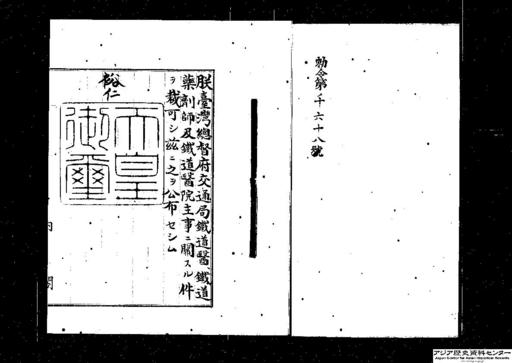 勅令第千六十八號
朕臺灣總督府交通局鐵道醫鐵道
藥劑師及鐵道醫院主事ニ關スル件
ヲ裁可シ茲ニ之ヲ公布セシム
裕仁
天皇
御璽
内閣
アジア歴史資料センター
Japan Center for Asian Historical Records